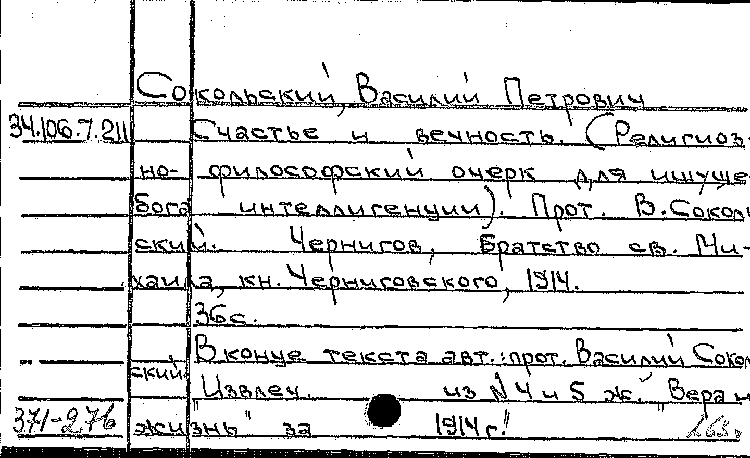 Сокольский, Василий Петрович
34.106.7.211 Счастье и вечность. (Религиоз-
но-философский очерк для ищуще
бога интеллигенции). Прот. В. Соколь
ский. Чернигов, Братство св. Ми-
хаила, кн. Черниговского, 1914.
36с.
В конце текста авт.: прот. Василий Сокол
ский.
Извлеч. из №4 и 5 ж. "Вера и
371-276 жизнь" за 1914 г.